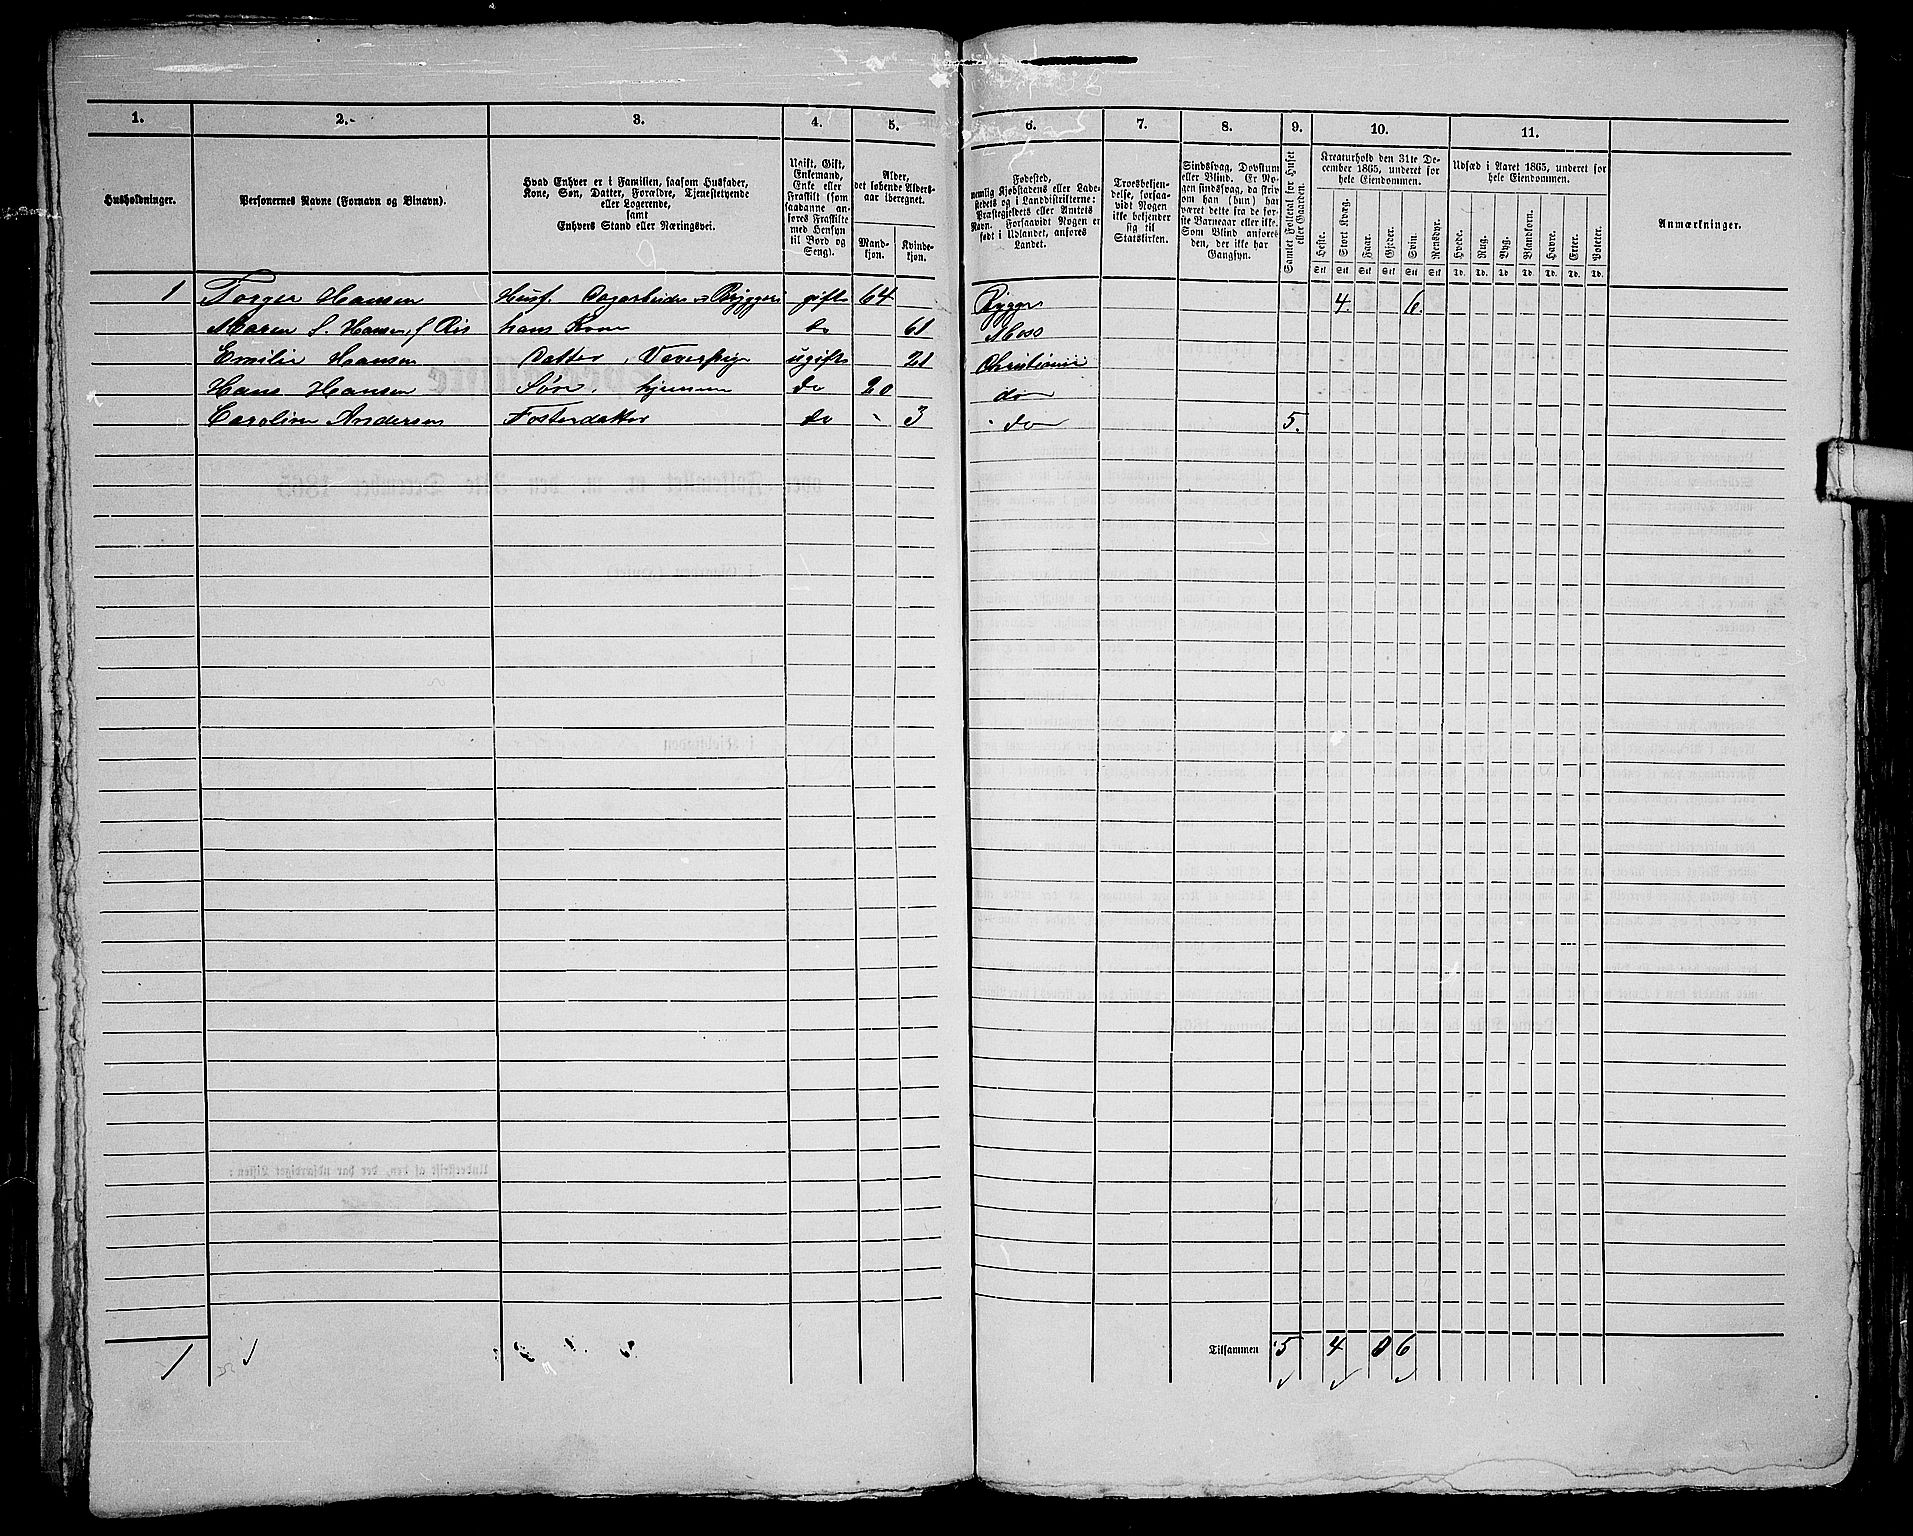 1. 2. 3. 4. 5. 6. 7. 8. 9. 10. 11.
Husholdninger.
Personernes Navne (Fornavn og Binavn).
Hvad Enhver er i Familien, saasom Husfader,
Kone, Søn, Datter, Forældre, Tjenestetyende
eller Logerende,
samt
Enhvers Stand eller Næringsvei.
Ugift, Gift,
Enkemand,
Enke eller
Fraskilt (som
saadanne an-
føres Fraskilte
med Hensyn
til Bord og
Seng).
Alder,
det løbende Alders-
aar iberegnet.
Mand-
kjøn.
Kvinde-
kjøn.
Fødested,
nemlig Kjøbstadens eller Lade-
stedets og i Landdistrikterne:
Præstegjeldets eller Amtets
Navn. Forsaavidt Nogen er
født i Udlandet, anføres
Landet.
Troesbekjen-
delse, forsaa-
vidt Nogen
ikke bekjender
sig til
Statskirken.
Sindssvag, Døvstum
eller Blind. Er No-
gen sindssvag, da skriv
om han (hun) har
været dette fra de før-
ste Barneaar eller ikke.
Som Blind anføres
den, der ikke har
Gangsyn.
Samlet Folketal for Huset
eller Gaarden.
Kreaturhold den 31te De-
cember 1865, underet for
hele Eiendommen.
Heste. Stort Kvæg. Faar. Gjeder. Svin. Rensdyr.
Stk Stk Stk Stk Stk Stk
Udsæd i Aaret 1865, underet for
hele Eiendommen.
Hvede. Rug. Byg. Blandkorn. Havre. Erter. Poteter.
Td. Td. Td. Td. Td. Td. Td.
Anmærkninger.
1 Torger Hansen Husf. Dagarbeider v. Bryggeri gift 64 Rygge 4. 6.
Maren S. Hansen f. Ris hans Kone do 61 Moss
Emilie Hansen Datter, Væverpige ugift 21 Christiania
Hans Hansen Søn, hjemme do 20 do
Caroline Andersen Fosterdatter do - 3 do 5.
1 Tilsammen 5 4 0 6